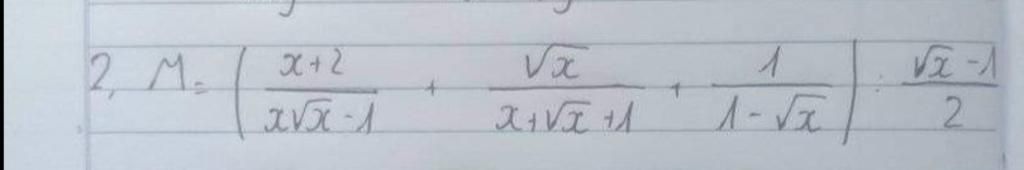 2, M = ( (x+2)/(x√x -1) + √x/(x+√x +1) + 1/(1-√x) ) : (√x -1)/2